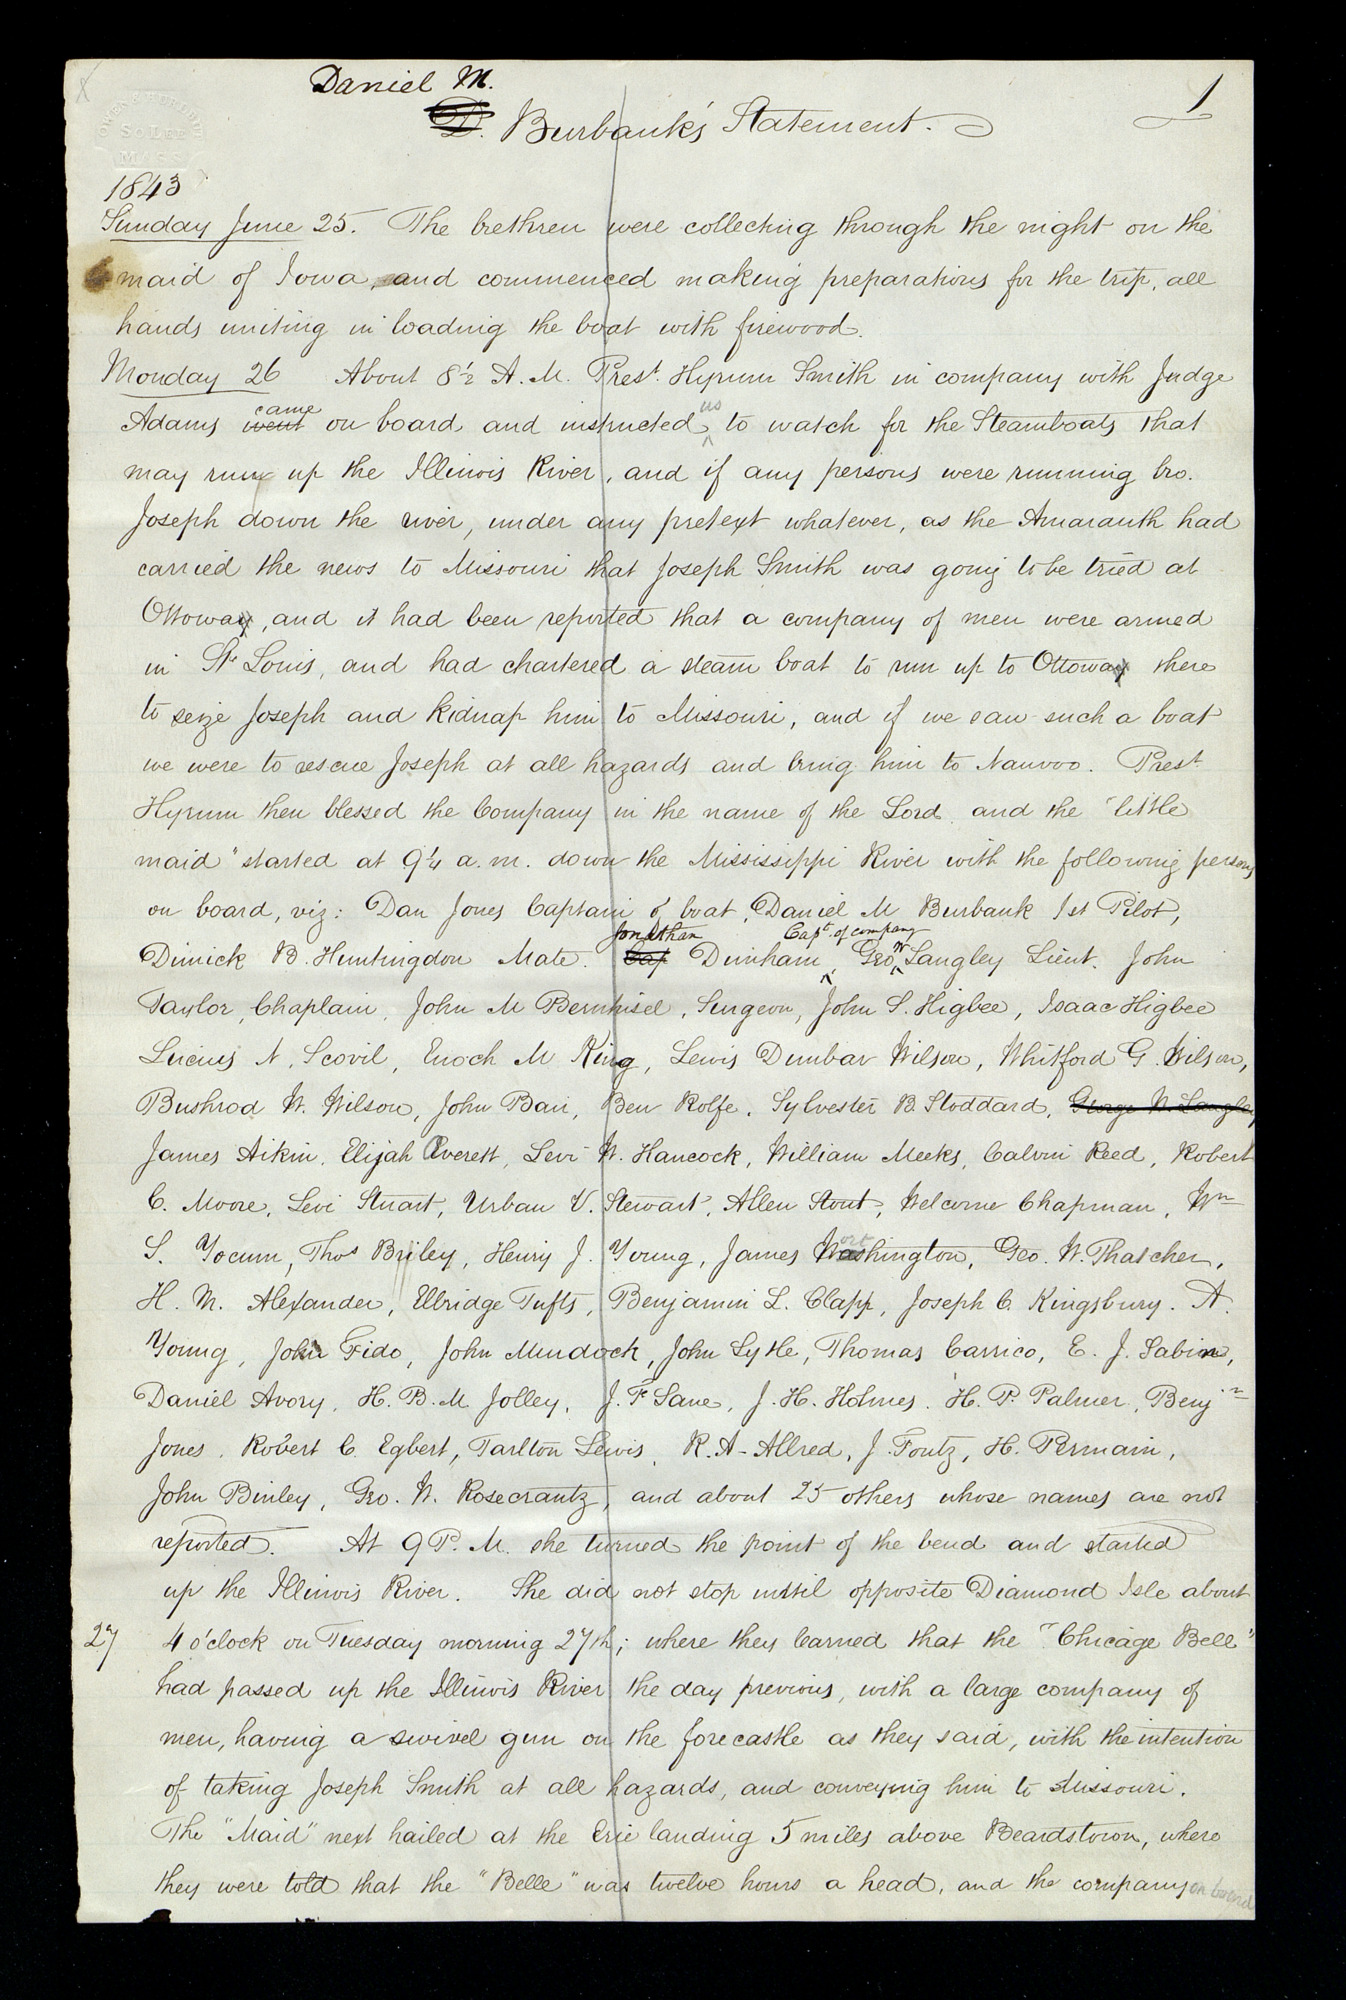 Daniel M.
1
D. Burbank's Statement.
OWEN & HURLBUT
So. LEE
MASS
1843
Sunday June 25. The brethren were collecting through the night on the
maid of Iowa, and commenced making preparations for the trip, all
hands uniting in loading the boat with firewood.
Monday 26 About 8½ A. M. Prest. Hyrum Smith in company with Judge
came us
Adams went on board and instructed ^ to watch for the Steamboats that
may run up the Illinois River, and if any persons were running bro.
Joseph down the river, under any pretext whatever, as the Amaranth had
carried the news to Missouri that Joseph Smith was going to be tried at
Ottoway, and it had been reported that a company of men were armed
in St. Louis, and had chartered a steam boat to run up to Ottoway there
to seize Joseph and kidnap him to Missouri, and if we saw such a boat
we were to rescue Joseph at all hazards and bring him to Nauvoo. Prest.
Hyrum then blessed the Company in the name of the Lord and the "little
maid" started at 9¼ a. m. down the Mississippi River with the following persons
on board, viz: Dan Jones Captain of boat, Daniel M Burbank 1st Pilot,
Jonathan Capt. of company
Dimick B. Huntingdon Mate. Cap Dunham, ^ Geo ^W Langley Lieut. John
Taylor, Chaplain, John M Bernhisel, Surgeon, John S. Higbee, Isaac Higbee
Lucius N. Scovil, Enoch M King, Lewis Dunbar Wilson, Whitford G. Wilson,
Bushrod W. Wilson, John Bair, Ben Rolfe, Sylvester B. Stoddard, George W. Langley
James Aikin, Elijah Averett, Levi W. Hancock, William Meeks, Calvin Reed, Robert
C. Moore, Levi Stuart, Urban V. Stewart, Allen Stout, Welcome Chapman, Wm
S. Yocum, Thos Briley, Henry J. Young, James Washington, Geo. W. Thatcher,
H. M. Alexander, Elbridge Tufts, Benjamin L. Clapp, Joseph C. Kingsbury. A.
Young, John Fido, John Murdock, John Lytle, Thomas Carrico, E. J. Sabine,
Daniel Avory, H. B. M. Jolley, J. F. Lane, J. H. Holmes, H. P. Palmer, Benjn
Jones, Robert C. Egbert, Tarlton Lewis, R. A. Allred, J. Foutz, H. Permain,
John Binley, Geo. W. Rosecrantz, and about 25 others whose names are not
reported. At 9 P. M. she turned the point of the bend and started
up the Illinois River. She did not stop until opposite Diamond Isle about
27 4 o'clock on Tuesday morning 27th; where they learned that the "Chicago Bell"
had passed up the Illinois River the day previous, with a large company of
men, having a swivel gun on the forecastle as they said, with the intention
of taking Joseph Smith at all hazards, and conveying him to Missouri.
The "Maid" next hailed at the Erie landing 5 miles above Beardstown, where
they were told that the "Belle" was twelve hours a head, and the company on board